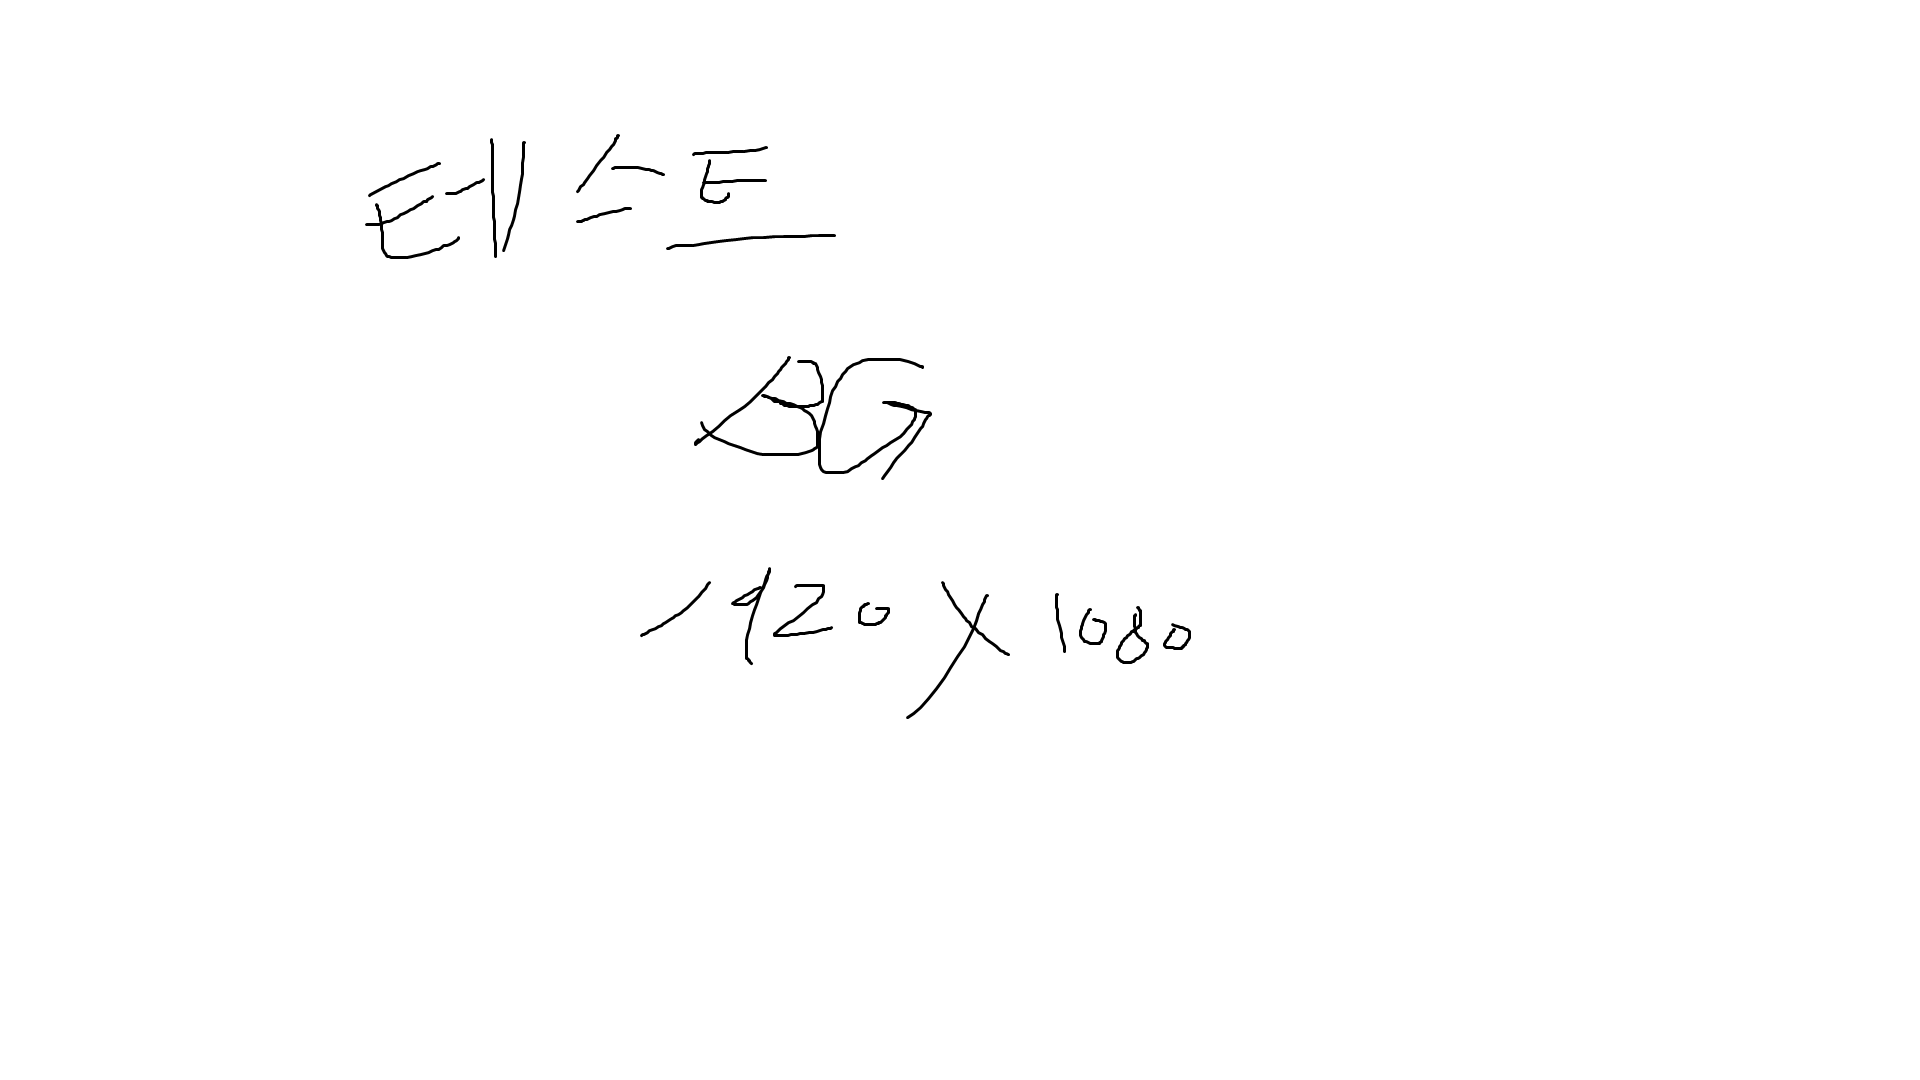 테스트
BG
1920 X 1080